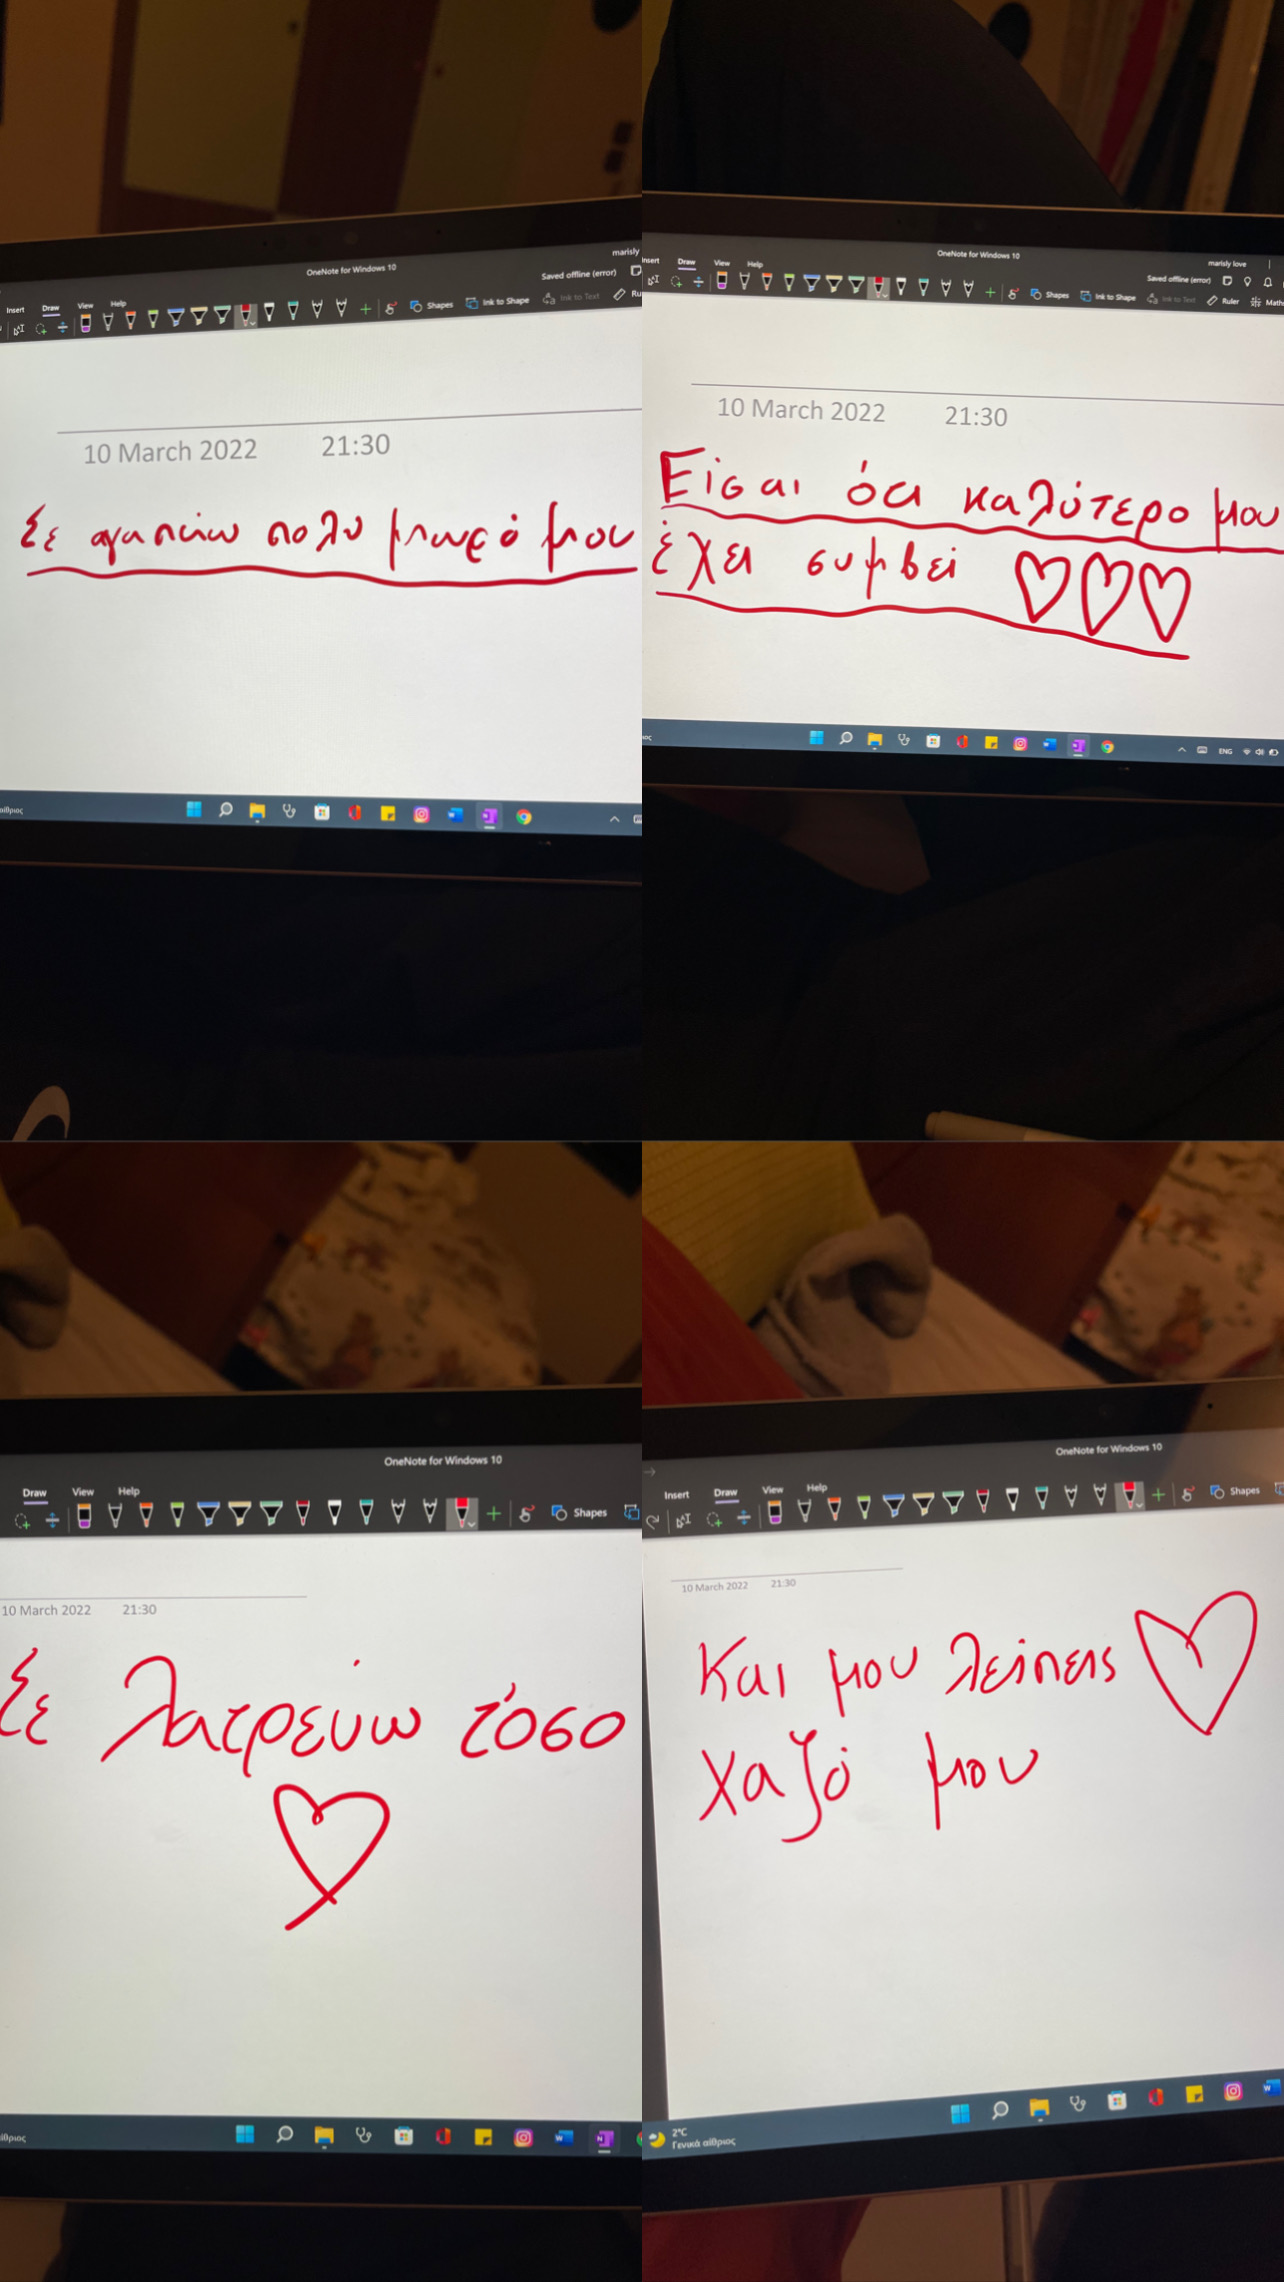 marisly
OneNote for Windows 10
Saved offline (error)
Insert Draw View Help
Shapes Ink to Shape Ink to Text Ru
10 March 2022 21:30
Σε αγαπάω πολυ μωρό μου
αίθριος
OneNote for Windows 10
marisly love
Insert Draw View Help
Saved offline (error)
Shapes Ink to Shape Ink to Text Ruler Math
10 March 2022 21:30
Είσαι ότι καλύτερο μου
έχει συμβεί
ος
ENG
OneNote for Windows 10
Draw View Help
Shapes
10 March 2022 21:30
Σε λατρεύω τόσο
αίθριος
OneNote for Windows 10
Insert Draw View Help
Shapes
10 March 2022 21:30
Και μου λείπεις
χαζό μου
2°C
Γενικά αίθριος